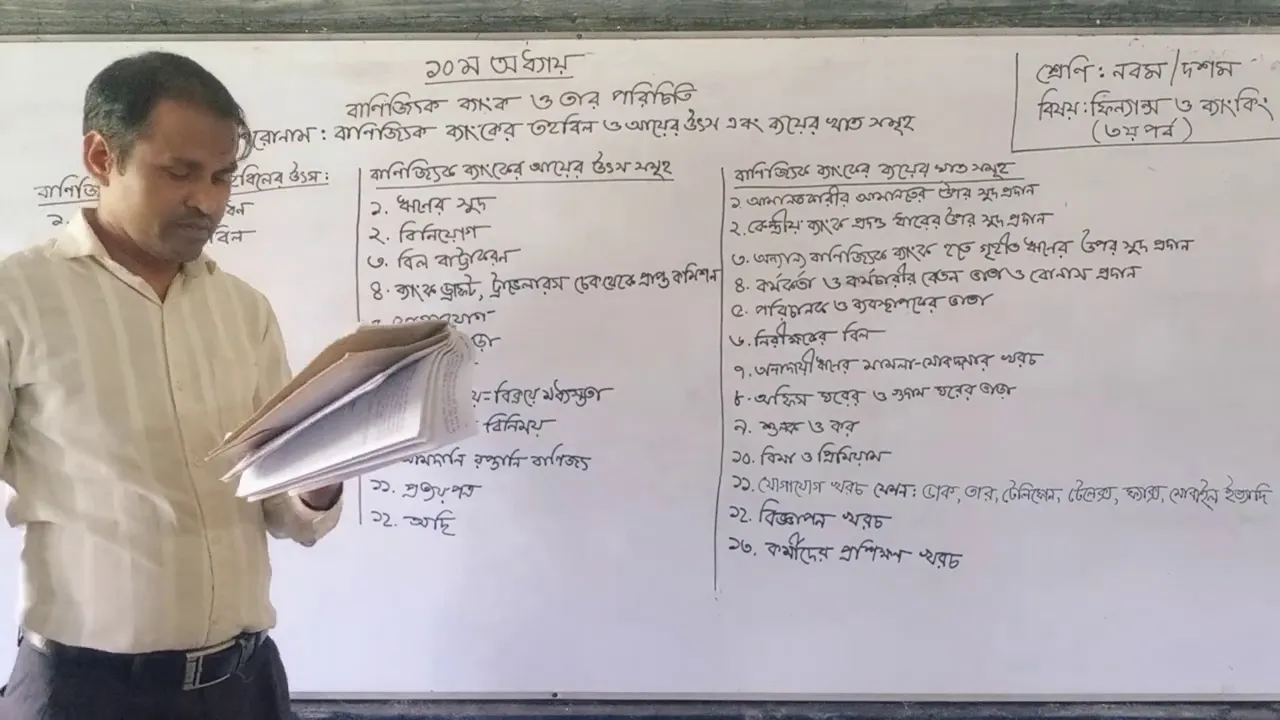 ১০ম অধ্যায়
বাণিজ্যিক ব্যাংক ও তার পরিচিতি
শ্রেণি : নবম / দশম
বিষয় : ফিন্যান্স ও ব্যাংকিং
(৩য় পর্ব)
রোনাম : বাণিজ্যিক ব্যাংকের তহবিল ও আয়ের উৎস এবং ব্যয়ের খাত সমূহ
বাণিজ্
হবিলের উৎস:
১.
বিল
বাণিজ্যিক ব্যাংকের আয়ের উৎস সমূহ
১. ঋণের সুদ
২. বিনিয়োগ
৩. বিল বাট্টাকরণ
৪. ব্যাংক ড্রাফট, ট্রাভেলারস চেক থেকে প্রাপ্ত কমিশন
ড়া
য়-বিক্রয়ে মধ্যস্ততা
বিনিময়
আমদানি রপ্তানি বাণিজ্য
১১. প্রত্যয়পত্র
১২. অছি
বাণিজ্যিক ব্যাংকের ব্যয়ের খাত সমূহ
১. আমানতকারীর আমানতের উপর সুদ প্রদান
২. কেন্দ্রীয় ব্যাংক প্রদত্ত ধারের উপর সুদ প্রদান
৩. অন্যান্য বাণিজ্যিক ব্যাংক হতে গৃহীত ঋণের উপর সুদ প্রদান
৪. কর্মকর্তা ও কর্মচারীর বেতন ভাতা ও বোনাস প্রদান
৫. পরিচালক ও ব্যবস্থাপকের ভাতা
৬. নিরীক্ষকের বিল
৭. অনাদায়ী ঋণের মামলা-মোকদ্দমার খরচ
৮. অফিস ঘরের ও গুদাম ঘরের ভাড়া
৯. শুল্ক ও কর
১০. বিমা ও প্রিমিয়াম
১১. যোগাযোগ খরচ যেমন : ডাক, তার, টেলিফোন, টেলেক্স, ফ্যাক্স, মোবাইল ইত্যাদি
১২. বিজ্ঞাপন খরচ
১৩. কর্মীদের প্রশিক্ষণ খরচ